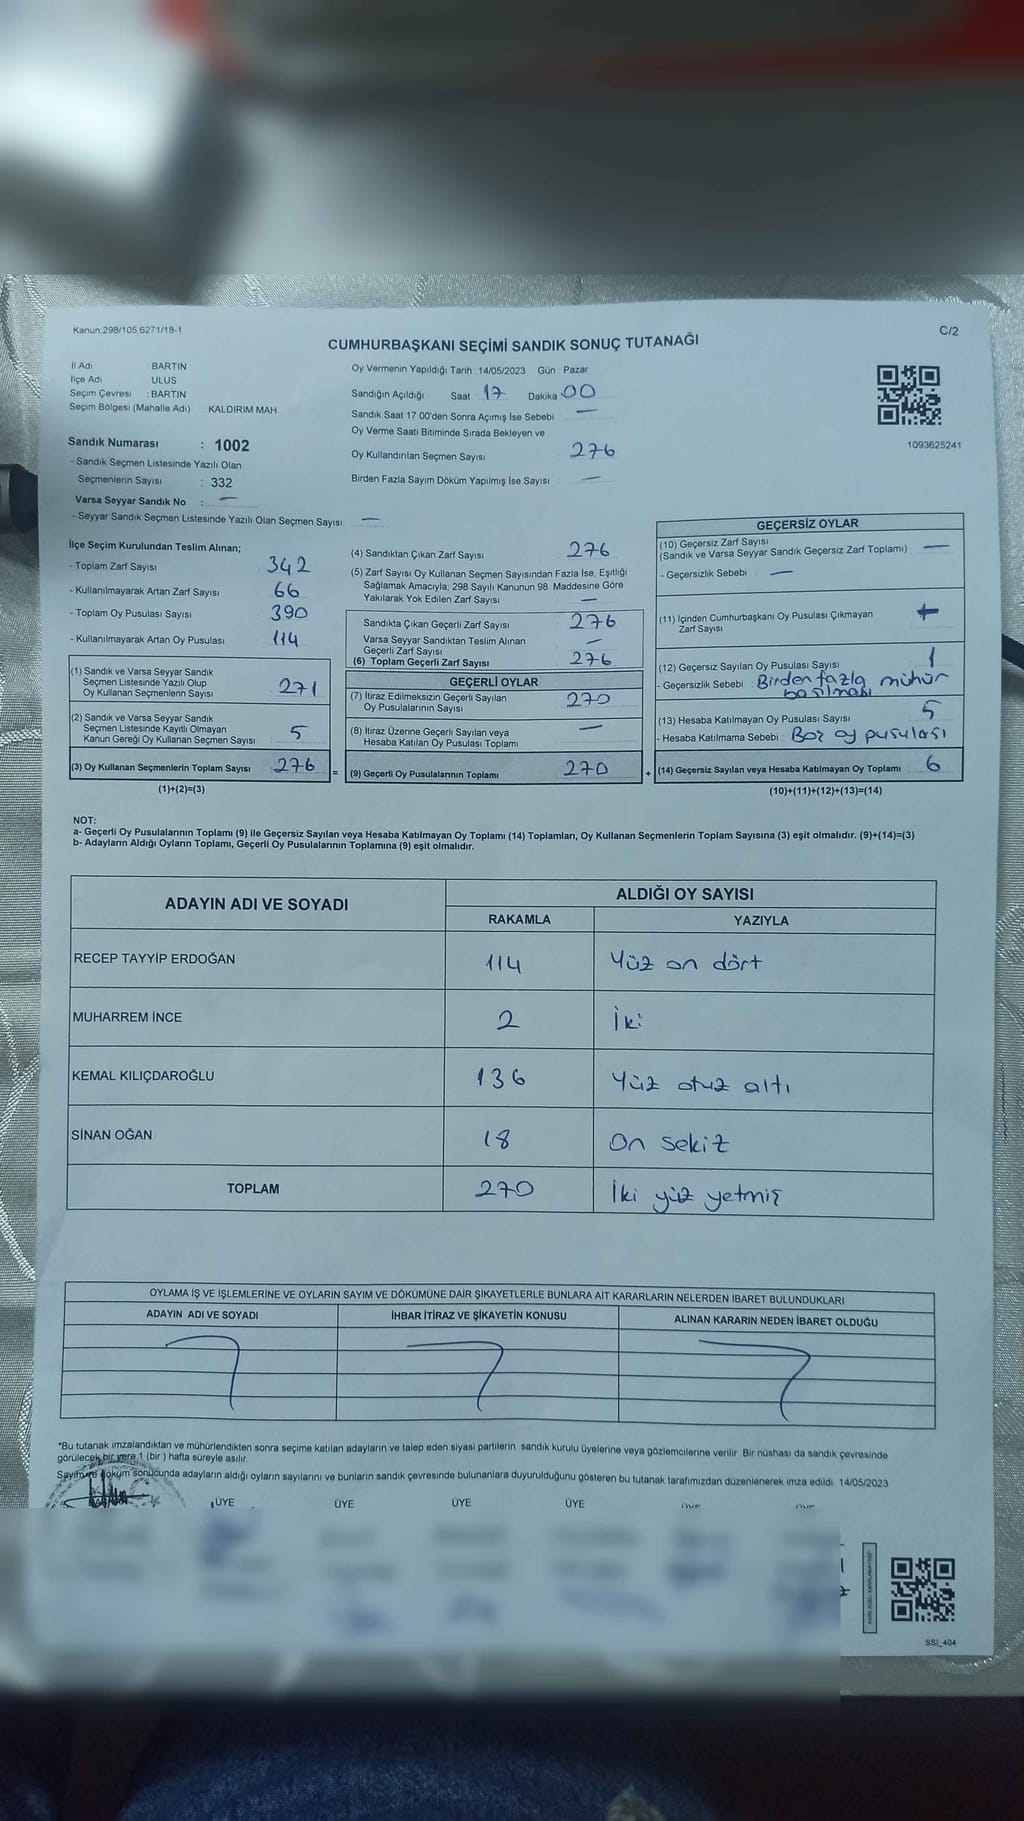 Kanun;298/105,6271/18-1
C/2
CUMHURBAŞKANI SEÇİMİ SANDIK SONUÇ TUTANAĞI
İl Adı BARTIN
İlçe Adı ULUS
Seçim Çevresi : BARTIN
Seçim Bölgesi (Mahalle Adı) : KALDIRIM MAH
Sandık Numarası : 1002
- Sandık Seçmen Listesinde Yazılı Olan
Seçmenlerin Sayısı : 332
Varsa Seyyar Sandık No : —
- Seyyar Sandık Seçmen Listesinde Yazılı Olan Seçmen Sayısı —
Oy Vermenin Yapıldığı Tarih 14/05/2023 Gün Pazar
Sandığın Açıldığı Saat 17 Dakika 00
Sandık Saat 17 00'den Sonra Açımış İse Sebebi —
Oy Verme Saati Bitiminde Sırada Bekleyen ve
Oy Kullandırılan Seçmen Sayısı 276
Birden Fazla Sayım Döküm Yapılmış İse Sayısı —
1093625241
İlçe Seçim Kurulundan Teslim Alınan;
- Toplam Zarf Sayısı 342
- Kullanılmayarak Artan Zarf Sayısı 66
- Toplam Oy Pusulası Sayısı 390
- Kullanılmayarak Artan Oy Pusulası 114
(1) Sandık ve Varsa Seyyar Sandık
Seçmen Listesinde Yazılı Olup
Oy Kullanan Seçmenlerın Sayısı 271
(2) Sandık ve Varsa Seyyar Sandık
Seçmen Listesinde Kayıtlı Olmayan
Kanun Gereği Oy Kullanan Seçmen Sayısı 5
(3) Oy Kullanan Seçmenlerin Toplam Sayısı 276
(1)+(2)=(3)
(4) Sandıktan Çıkan Zarf Sayısı 276
(5) Zarf Sayısı Oy Kullanan Seçmen Sayısından Fazla İse, Eşitliği
Sağlamak Amacıyla, 298 Sayılı Kanunun 98. Maddesine Göre
Yakılarak Yok Edilen Zarf Sayısı —
Sandıkta Çıkan Geçerli Zarf Sayısı 276
Varsa Seyyar Sandıktan Teslim Alınan
Geçerli Zarf Sayısı —
(6) Toplam Geçerli Zarf Sayısı 276
GEÇERLİ OYLAR
(7) İtiraz Edilmeksizin Geçerli Sayılan
Oy Pusulalarının Sayısı 270
(8) İtiraz Üzerine Geçerli Sayılan veya
Hesaba Katılan Oy Pusulası Toplamı —
= (9) Geçerli Oy Pusulalarının Toplamı 270 +
GEÇERSİZ OYLAR
(10) Geçersiz Zarf Sayısı
(Sandık ve Varsa Seyyar Sandık Geçersiz Zarf Toplamı) —
- Geçersizlik Sebebi : —
(11) İçinden Cumhurbaşkanı Oy Pusulası Çıkmayan
Zarf Sayısı
(12) Geçersiz Sayılan Oy Pusulası Sayısı 1
- Geçersizlik Sebebi Birden fazla mühür
basılması
(13) Hesaba Katılmayan Oy Pusulası Sayısı 5
- Hesaba Katılmama Sebebi : Boş oy pusulası
(14) Geçersiz Sayılan veya Hesaba Katılmayan Oy Toplamı : 6
(10)+(11)+(12)+(13)=(14)
NOT:
a- Geçerli Oy Pusulalarının Toplamı (9) ile Geçersiz Sayılan veya Hesaba Katılmayan Oy Toplamı (14) Toplamları, Oy Kullanan Seçmenlerin Toplam Sayısına (3) eşit olmalıdır. (9)+(14)=(3)
b- Adayların Aldığı Oyların Toplamı, Geçerli Oy Pusulalarının Toplamına (9) eşit olmalıdır.
ADAYIN ADI VE SOYADI ALDIĞI OY SAYISI
RAKAMLA YAZIYLA
RECEP TAYYİP ERDOĞAN 114 Yüz on dört
MUHARREM İNCE 2 İki
KEMAL KILIÇDAROĞLU 136 Yüz otuz altı
SİNAN OĞAN 18 On sekiz
TOPLAM 270 İki yüz yetmiş
OYLAMA İŞ VE İŞLEMLERİNE VE OYLARIN SAYIM VE DÖKÜMÜNE DAİR ŞİKAYETLERLE BUNLARA AİT KARARLARIN NELERDEN İBARET BULUNDUKLARI
ADAYIN ADI VE SOYADI İHBAR İTİRAZ VE ŞİKAYETİN KONUSU ALINAN KARARIN NEDEN İBARET OLDUĞU
*Bu tutanak imzalandıktan ve mühürlendikten sonra seçime katılan adayların ve talep eden siyasi partilerin sandık kurulu üyelerine veya gözlemcilerine verilir. Bir nüshası da sandık çevresinde
görülecek bir yere 1 (bir) hafta süreyle asılır.
Sayım ve döküm sonucunda adayların aldığı oyların sayılarını ve bunların sandık çevresinde bulunanlara duyurulduğunu gösteren bu tutanak tarafımızdan düzenlenerek imza edildi. 14/05/2023
ÜYE ÜYE ÜYE ÜYE
SSI_404